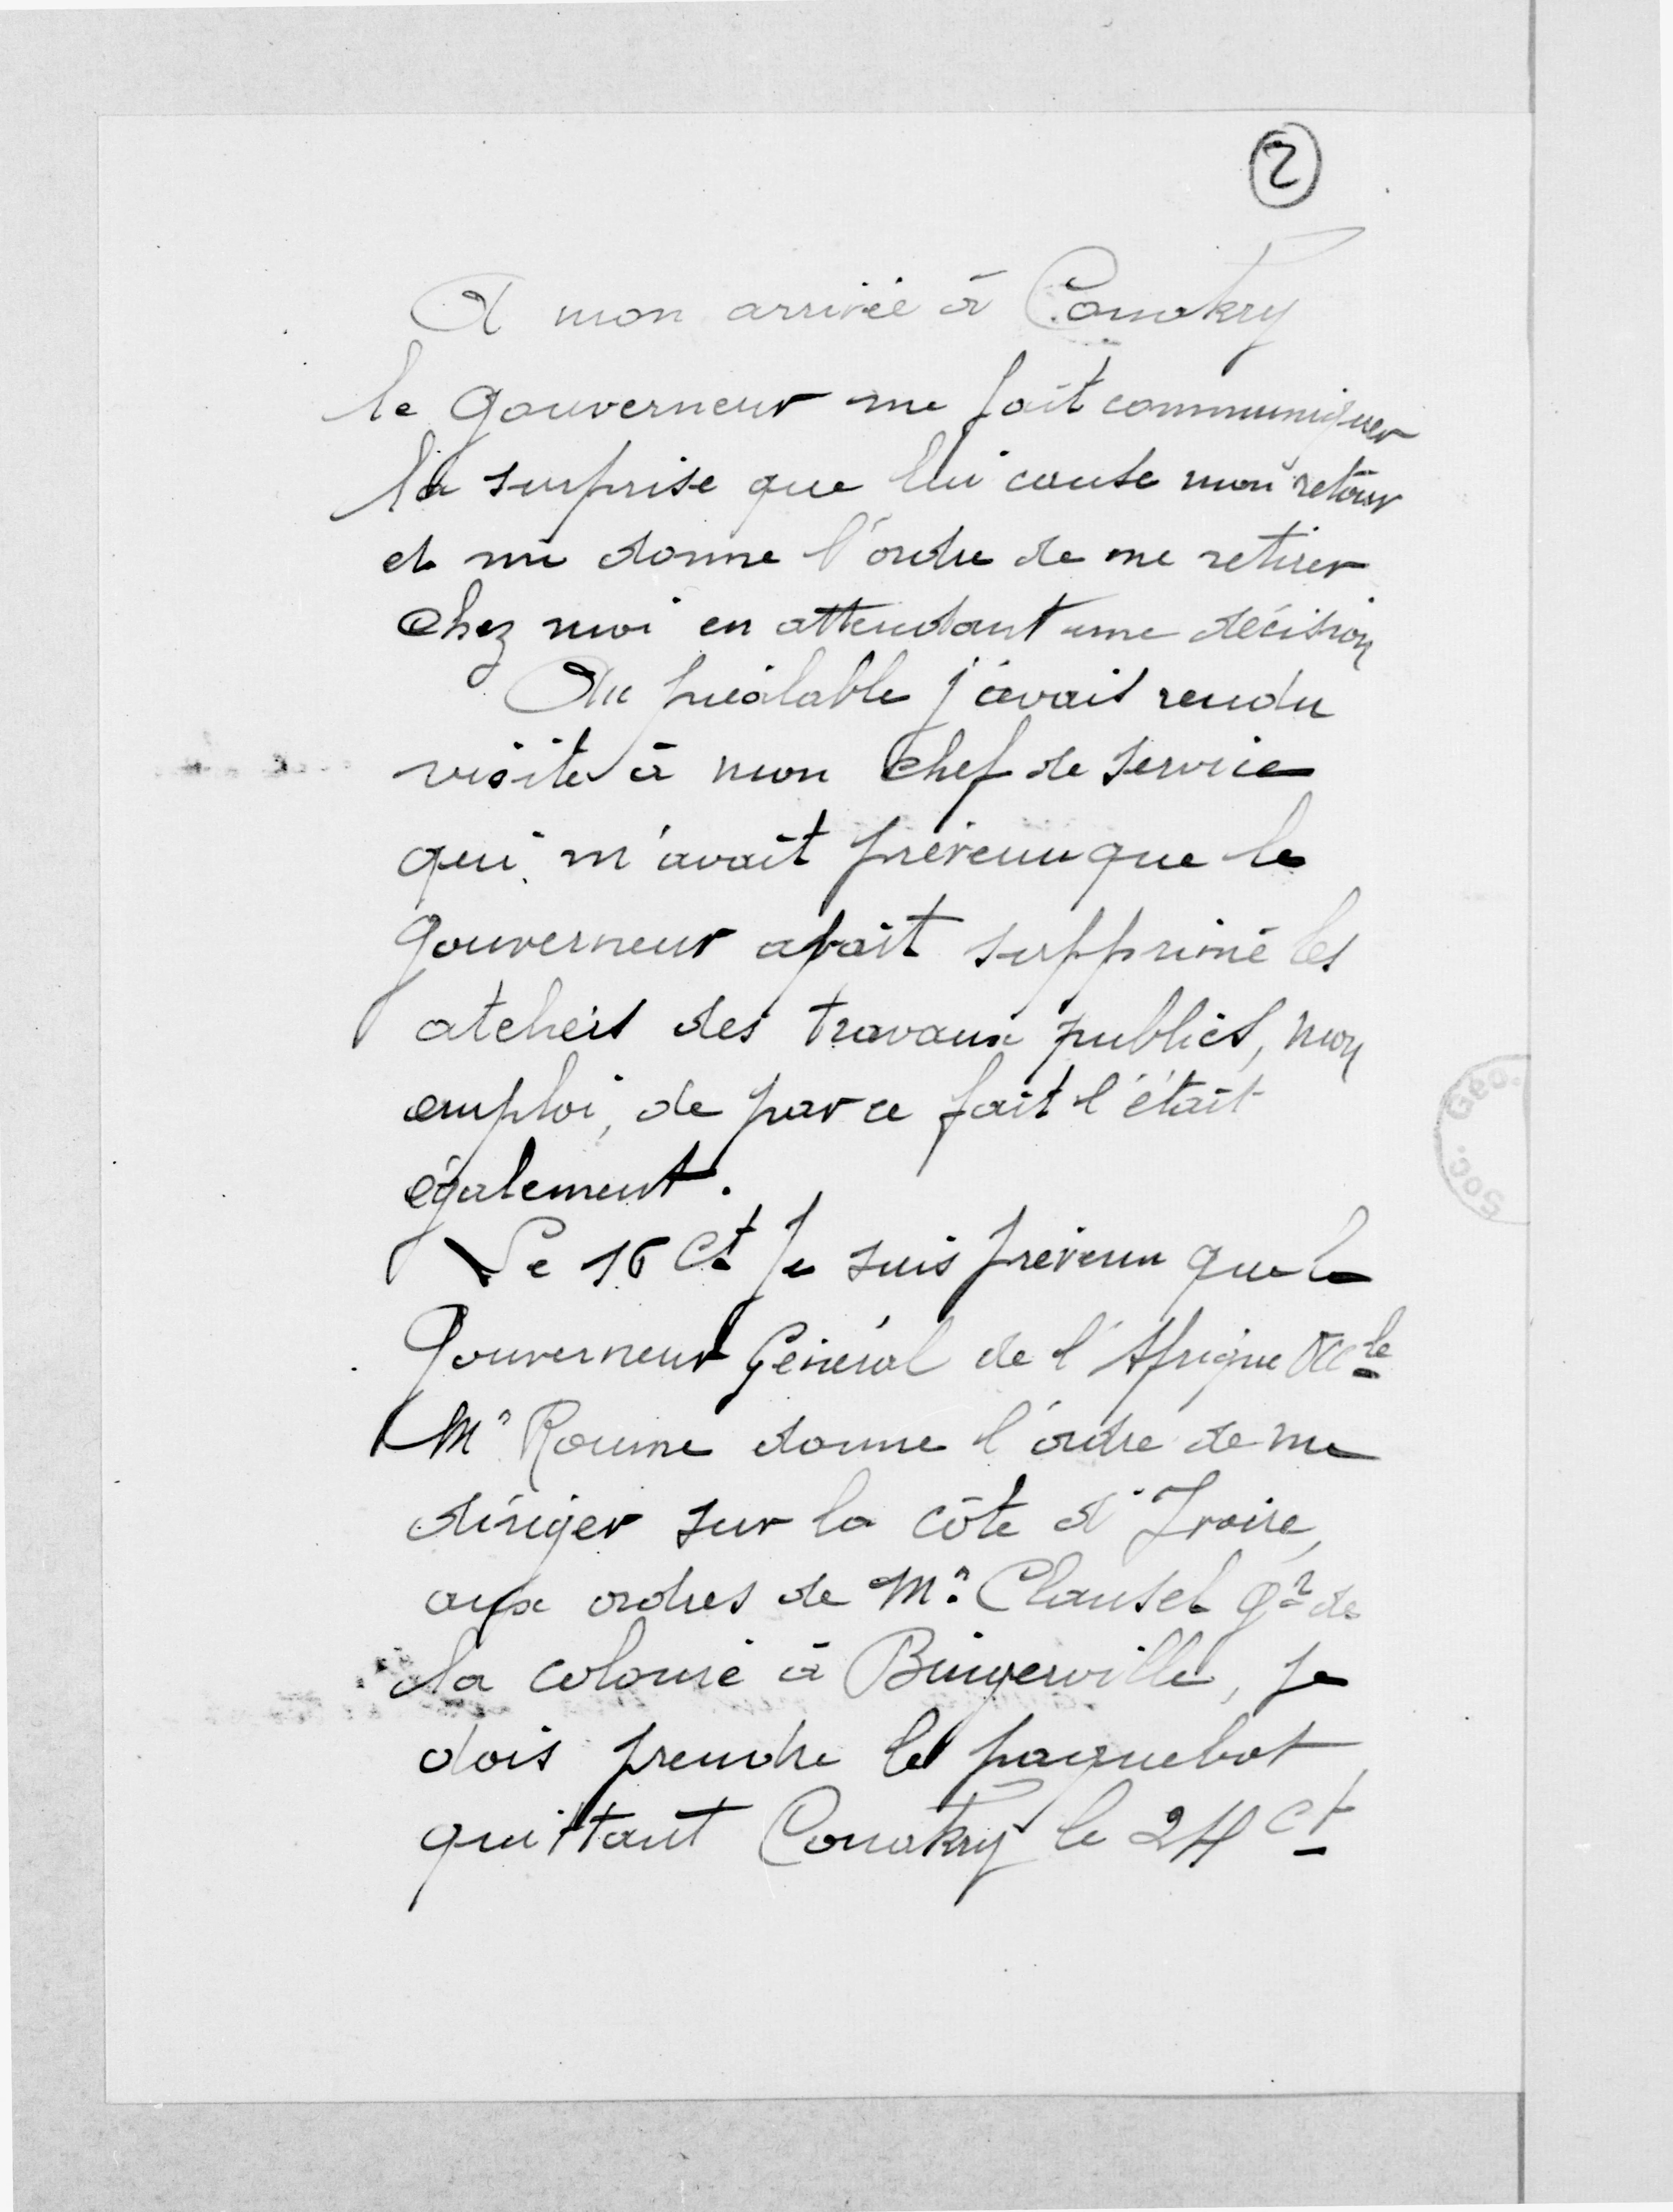 2
A mon arrivée à Conakry
le Gouverneur me fait communiquer
la surprise que lui cause mon retour
et me donne l'ordre de me retirer
chez moi en attendant une décision
Au préalable j'avais rendu
visite à mon chef de service
qui m'avait prévenu que le
Gouverneur avait supprimé les
ateliers des travaux publics, mon
emploi, de par ce fait l'était
également.
Le 16 Ct je suis prévenu que le
Gouverneur Général de l'Afrique Occle
Mr Roume donne l'ordre de me
diriger sur la côte d'Ivoire,
aux ordres de Mr Clausel Gr de
la colonie à Bingerville, je
dois prendre le paquebot
quittant Conakry le 24 Ct
Soc. Géo.